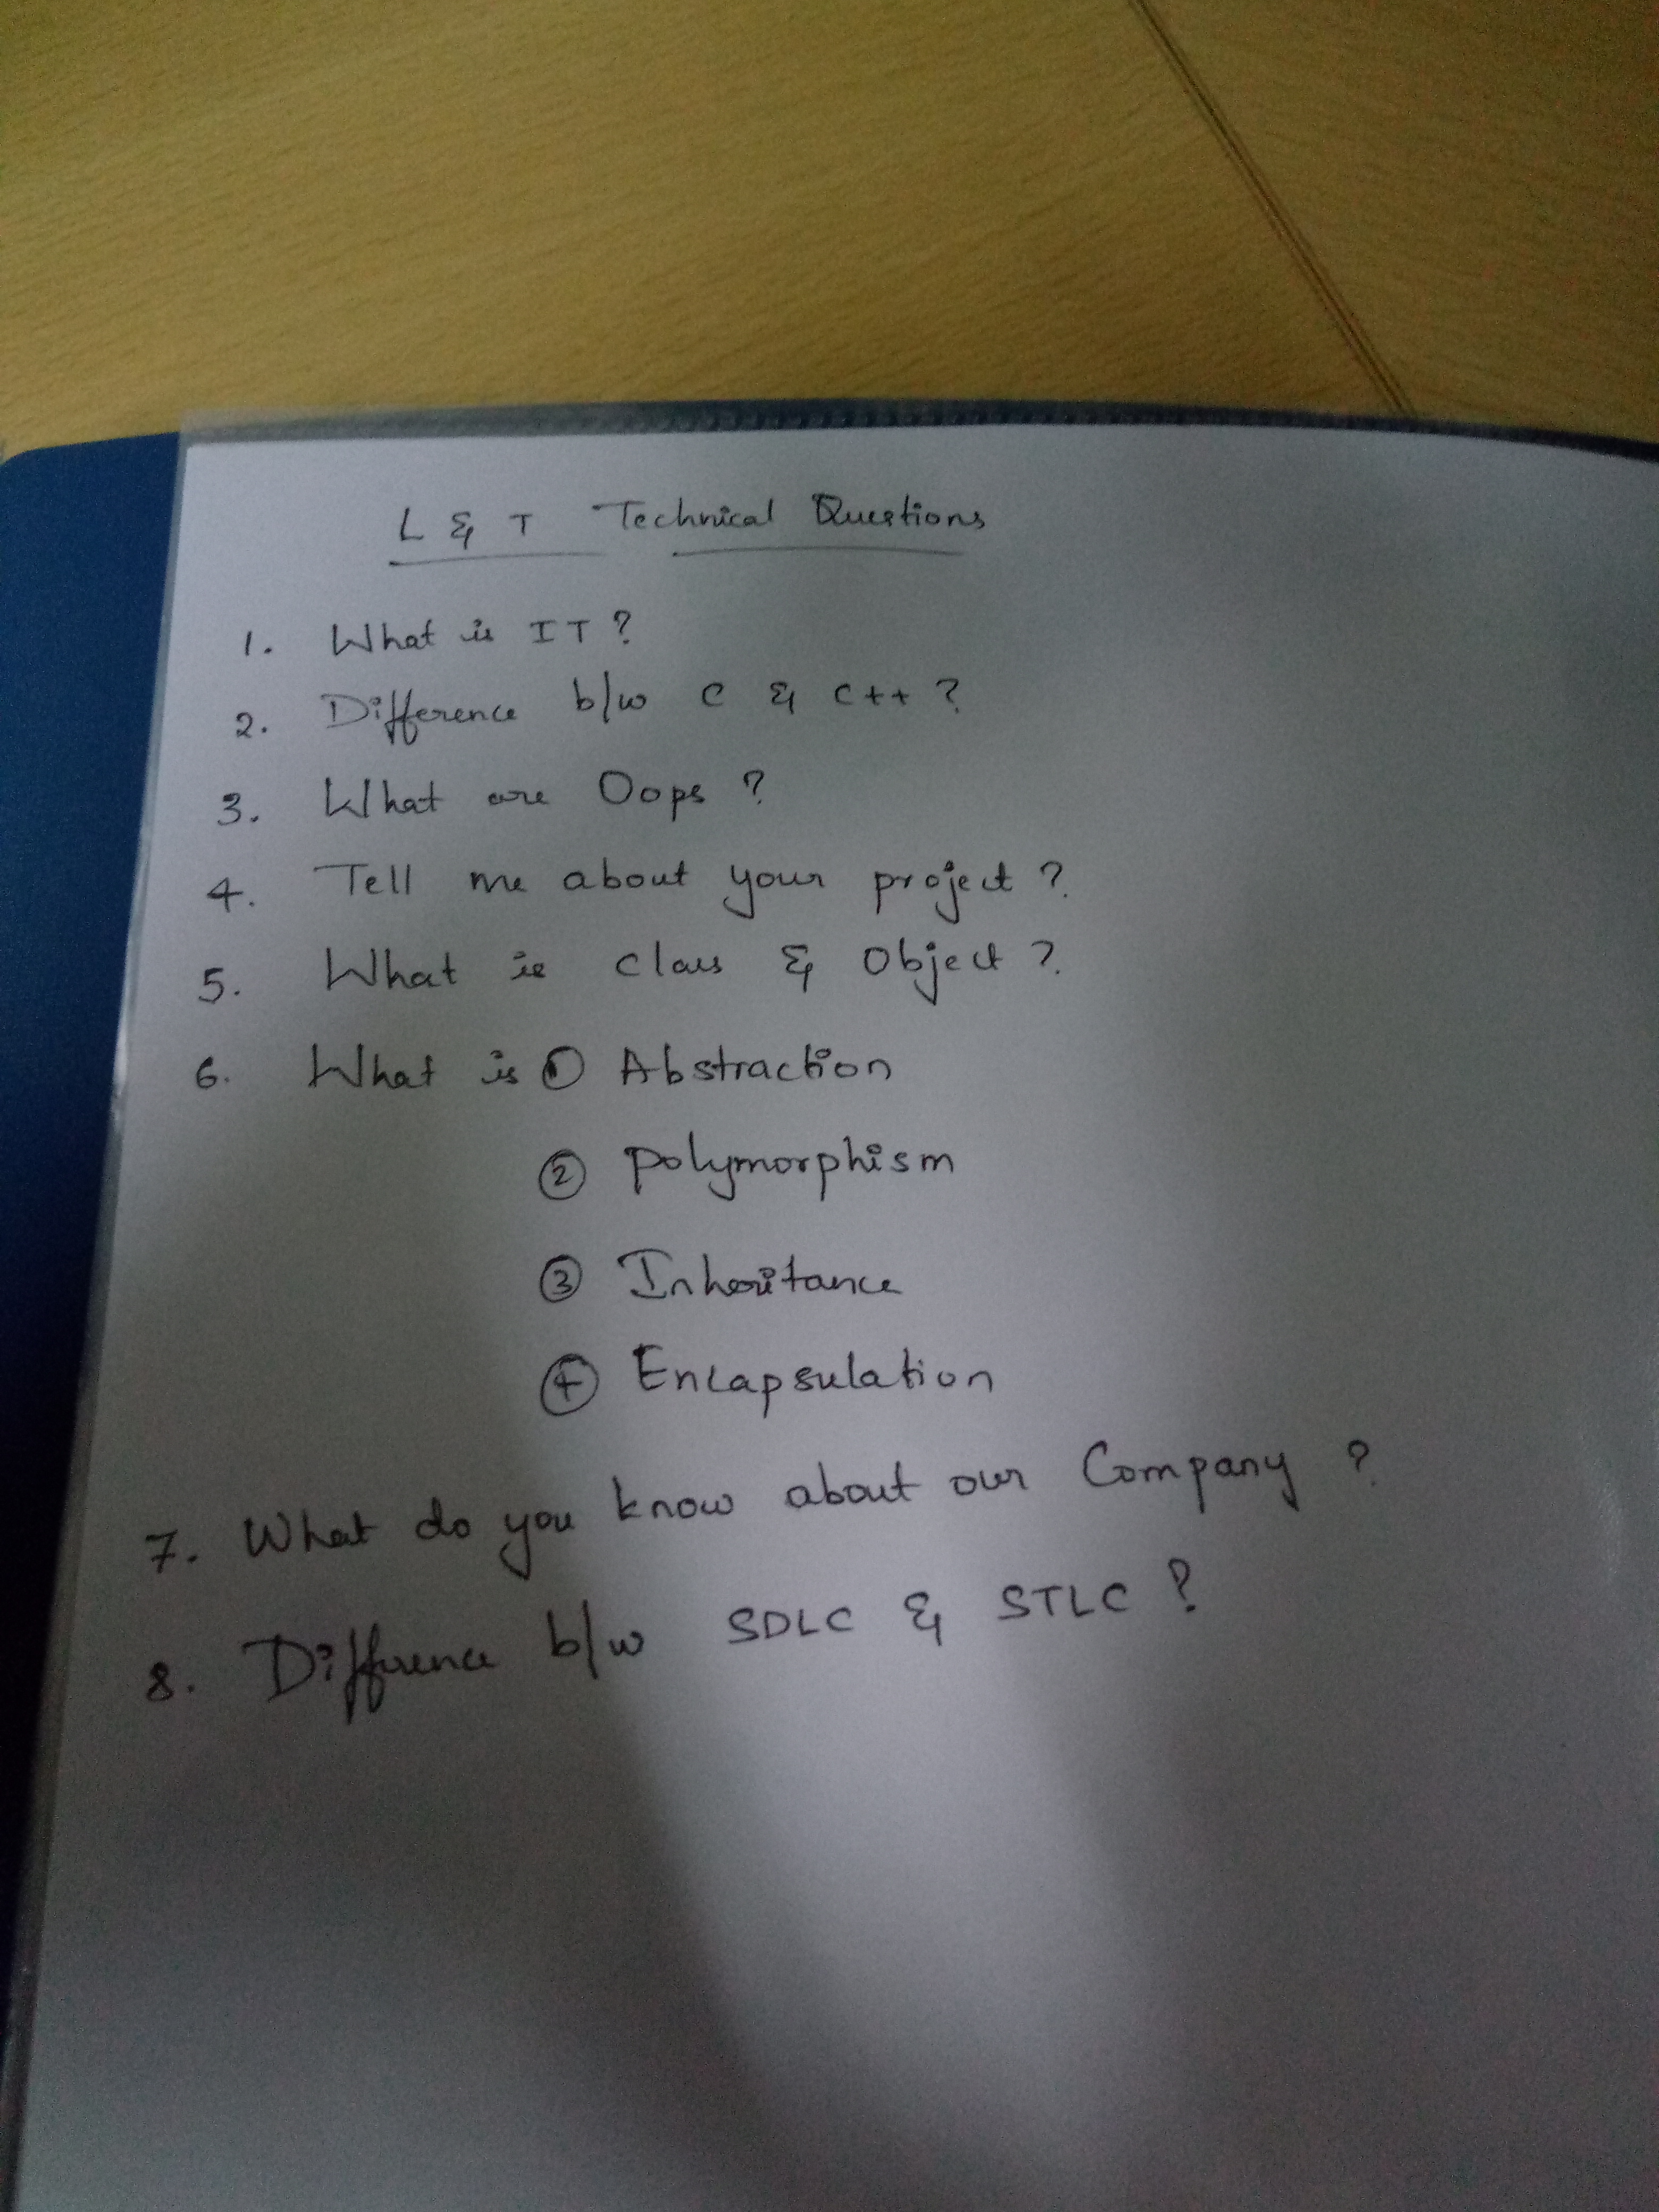 L & T Technical Questions
1. What is IT ?
2. Difference b/w C & C++ ?
3. What are Oops ?
4. Tell me about your project ?
5. What is class & Object ?
6. What is ① Abstraction
② Polymorphism
③ Inheritance
④ Encapsulation
7. What do you know about our Company ?
8. Difference b/w SDLC & STLC ?